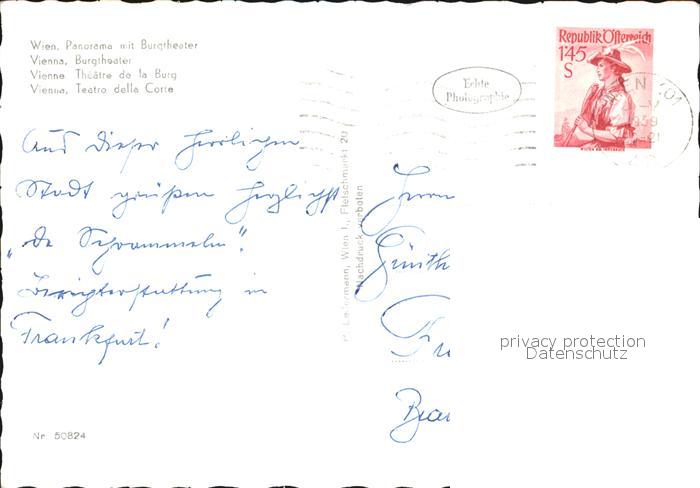 Wien, Panorama mit Burgtheater
Vienna, Burgtheater
Vienne Théâtre de la Burg
Vienna, Teatro della Corte
Echte
Photographie
Republik Österreich
1'45
S
WIEN 101
1959
Aus dieser herrlichen
Stadt grüßen herzlichst
„De Schrammeln".
Berichterstattung in
Frankfurt!
Wien I., Fleischmarkt 20
Nachdruck verboten
Herrn
Günth
privacy protection
Datenschutz
Nr. 50824